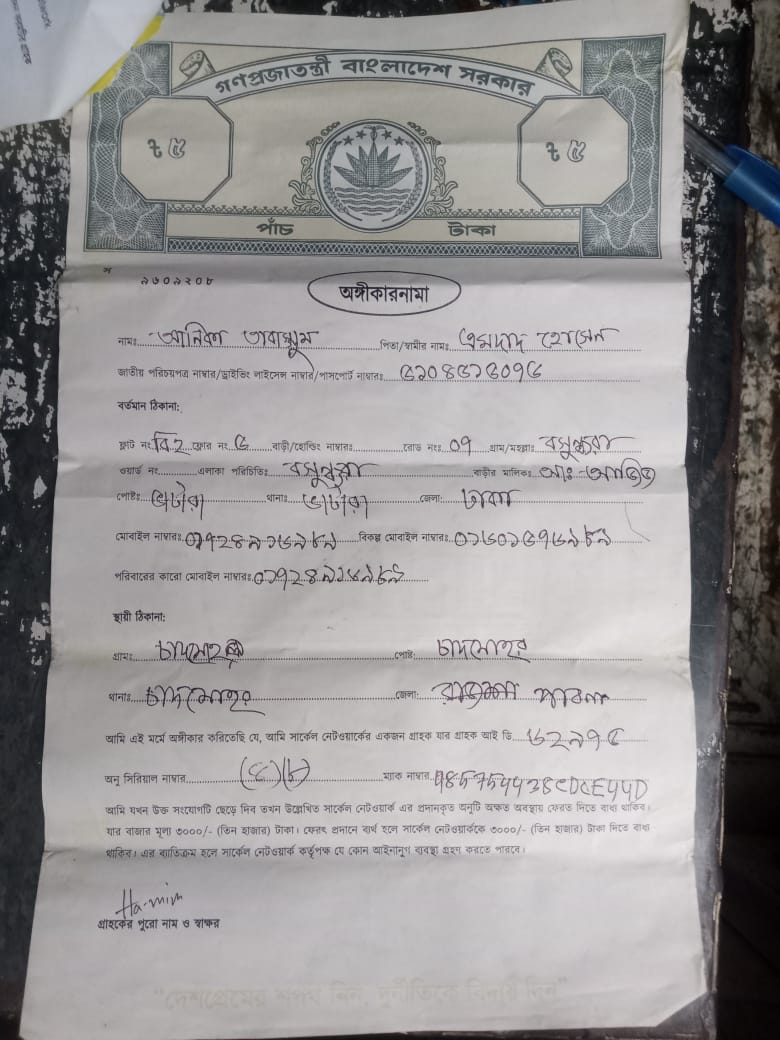 গণপ্রজাতন্ত্রী বাংলাদেশ সরকার
৳ ৫ ৳ ৫
পাঁচ টাকা
৯৬০৯২০৮
অঙ্গীকারনামা
নামঃ পিতা/স্বামীর নামঃ এমদাদ হোসেন
জাতীয় পরিচয়পত্র নাম্বার/ড্রাইভিং লাইসেন্স নাম্বার/পাসপোর্ট নাম্বারঃ
বর্তমান ঠিকানা:
ফ্লাট নং বি২ ফ্লোর নং ৫ বাড়ী/হোল্ডিং নাম্বারঃ রোড নংঃ ০৭ গ্রাম/মহল্লাঃ বসুন্ধরা
ওয়ার্ড নং এলাকা পরিচিতিঃ বসুন্ধরা বাড়ীর মালিকঃ আঃ আজিজ
পোষ্টঃ ভাটারা থানাঃ ভাটারা জেলা: ঢাকা
মোবাইল নাম্বারঃ বিকল্প মোবাইল নাম্বারঃ
পরিবারের কারো মোবাইল নাম্বারঃ
স্থায়ী ঠিকানা:
গ্রামঃ চাটমোহর পোষ্ট: চাটমোহর
থানাঃ চাটমোহর জেলা: পাবনা
আমি এই মর্মে অঙ্গীকার করিতেছি যে, আমি সার্কেল নেটওয়ার্কের একজন গ্রাহক যার গ্রাহক আই ডি
অনু সিরিয়াল নাম্বার ম্যাক নাম্বার
আমি যখন উক্ত সংযোগটি ছেড়ে দিব তখন উল্লেখিত সার্কেল নেটওয়ার্ক এর প্রদানকৃত অনুটি অক্ষত অবস্থায় ফেরত দিতে বাধ্য থাকিব।
যার বাজার মূল্য ৩০০০/- (তিন হাজার) টাকা। ফেরৎ প্রদানে ব্যর্থ হলে সার্কেল নেটওয়ার্ককে ৩০০০/- (তিন হাজার) টাকা দিতে বাধ্য
থাকিব। এর ব্যতিক্রম হলে সার্কেল নেটওয়ার্ক কর্তৃপক্ষ যে কোন আইনানুগ ব্যবস্থা গ্রহণ করতে পারবে।
Ha-mim
গ্রাহকের পুরো নাম ও স্বাক্ষর
"দেশপ্রেমের শপথ নিন, দুর্নীতিকে বিদায় দিন"